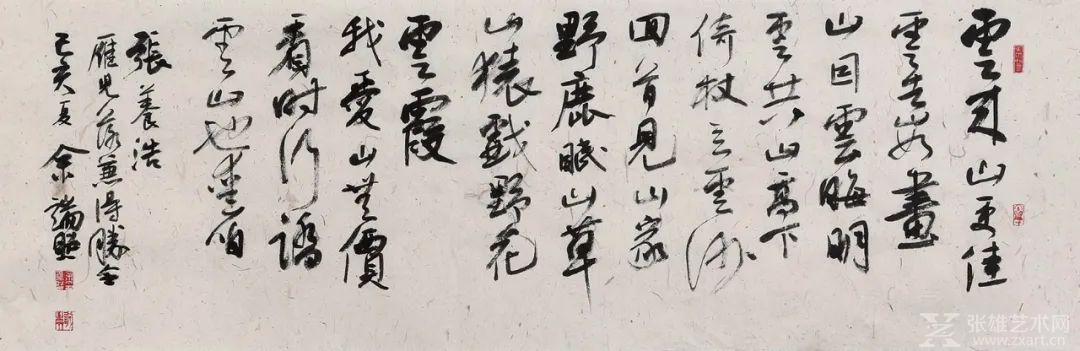 雲來山更佳
雲去如畫
山因雲晦明
雲共山高下
倚杖立雲沙
回首見山家
野鹿眠山草
山猿戲野花
雲霞
我愛山無價
看時行踏
雲山也愛咱
張養浩
雁兒落兼得勝令
己亥夏 余端照
张雄艺术网
www.zxart.cn